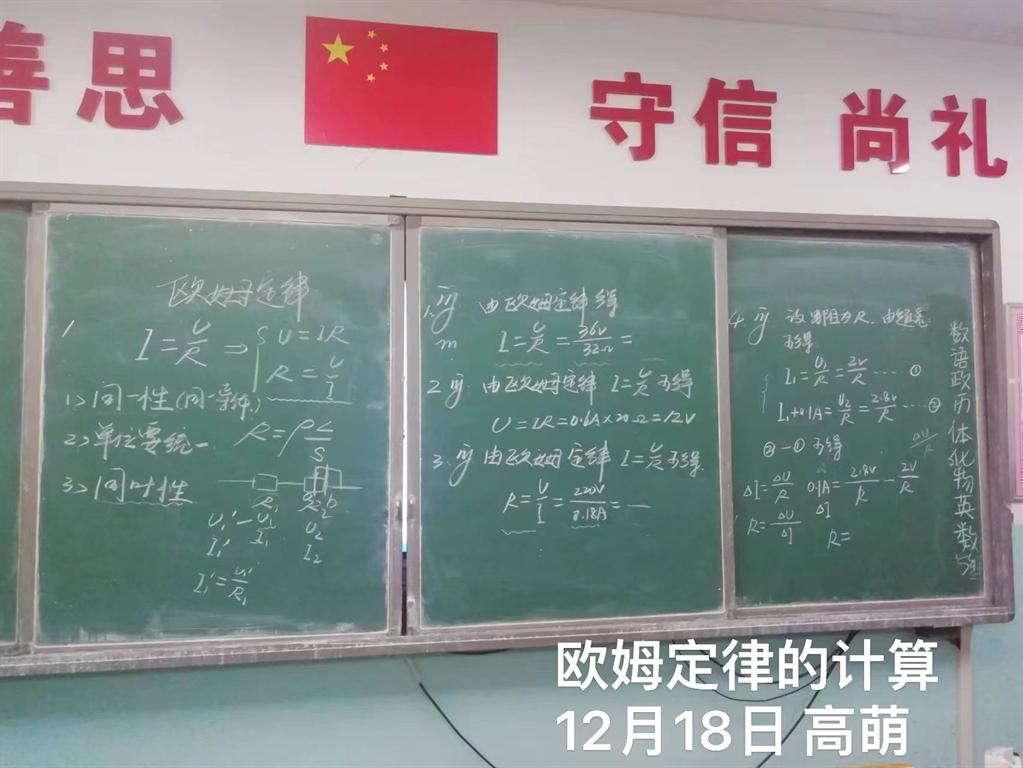 善思
守信 尚礼
欧姆定律
1
I=U/R ⇒ { U=IR
R=U/I
1>同一性(同一导体)
2>单位要统一
R=ρL/S
3>同时性
R₁ R₂
U₁' U₁ U₂
I₁' I₁ I₂
I₁'=U₁'/R₁
1.解 由欧姆定律得
I=U/R=36V/32Ω=
2.解: 由欧姆定律 I=U/R 可得
U=IR=0.6A×20Ω=12V
3.解 由欧姆定律 I=U/R 可得
R=U/I=220V/0.18A=
4.解 设 阻为R, 由
可得
I₁=U₁/R=2V/R ①
I₁+0.1A=U₂/R=2.8V/R ②
②-① 可得
ΔU/R
ΔI=ΔU/R 0.1A=2.8V/R-2V/R
ΔI
R=ΔU/ΔI R=
数语政历体化物英数
欧姆定律的计算
12月18日 高萌